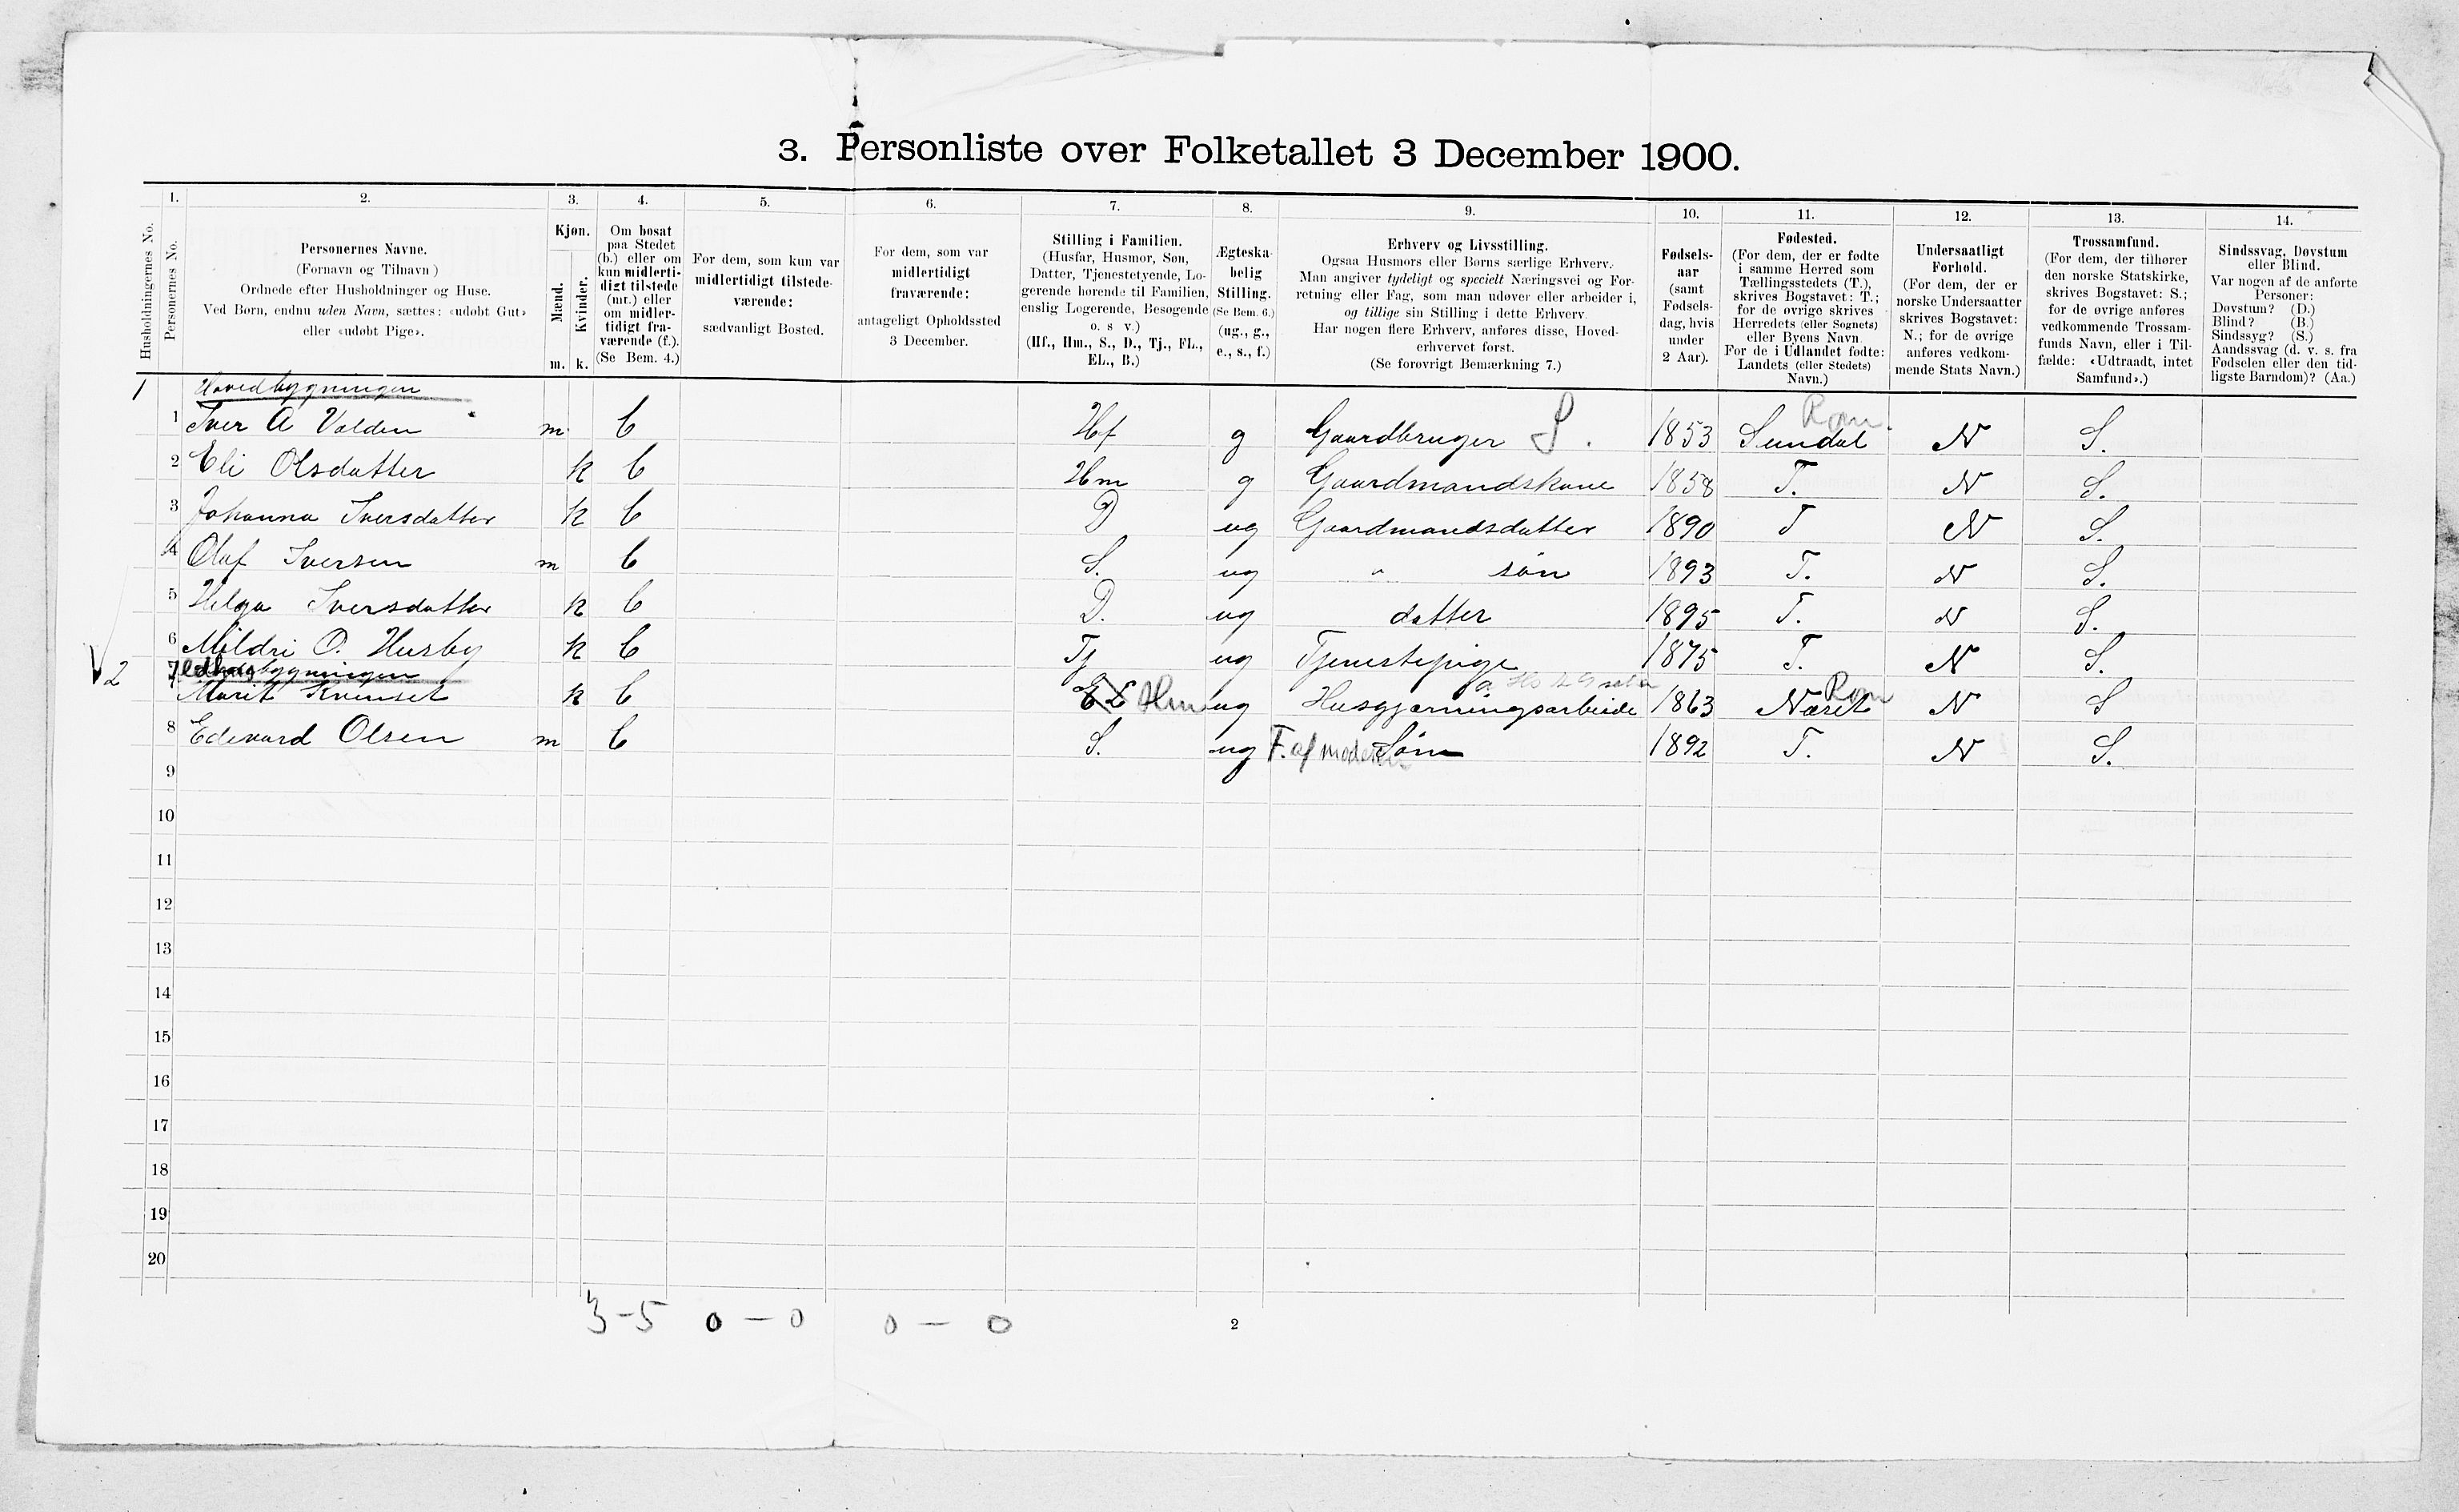 3. Personliste over Folketallet 3 December 1900.
Husholdningernes No.
1.
Personernes No.
2.
Personernes Navne.
(Fornavn og Tilnavn)
Ordnede efter Husholdninger og Huse.
Ved Børn, endnu uden Navn, sættes: «udøbt Gut»
eller «udøbt Pige».
3.
Kjøn.
Mænd.
Kvinder.
m. k.
4.
Om bosat
paa Stedet
(b.) eller om
kun midlerti-
digt tilstede
(mt.) eller
om midler-
tidigt fra-
værende (f.).
(Se Bem. 4.)
5.
For dem, som kun var
midlertidigt tilstede-
værende:
sædvanligt Bosted.
6.
For dem, som var
midlertidigt
fraværende:
antageligt Opholdssted
3 December.
7.
Stilling i Familien.
(Husfar, Husmor, Søn,
Datter, Tjenestetyende, Lo-
gerende hørende til Familien,
enslig Logerende, Besøgende
o. s v.)
(Hf., Hm., S., D., Tj., FL.,
EL., B.)
8.
Ægteska-
belig
Stilling.
(Se Bem. 6.)
(ug., g.,
e., s., f.)
9.
Erhverv og Livsstilling.
Ogsaa Husmors eller Børns særlige Erhverv.
Man angiver tydeligt og specielt Næringsvei og For-
retning eller Fag, som man udøver eller arbeider i,
og tillige sin Stilling i dette Erhverv.
Har nogen flere Erhverv, anføres disse, Hoved-
erhvervet først.
(Se forøvrigt Bemærkning 7.)
10.
Fødsels-
aar
(samt
Fødsels-
dag, hvis
under
2 Aar).
11.
Fødested.
(For dem, der er fødte
i samme Herred som
Tællingsstedets (T.),
skrives Bogstavet: T.;
for de øvrige skrives
Herredets (eller Sognets)
eller Byens Navn.
For de i Udlandet fødte:
Landets (eller Stedets)
Navn.)
12.
Undersaatligt
Forhold.
(For dem, der er
norske Undersaatter
skrives Bogstavet:
N.; for de øvrige
anføres vedkom-
mende Stats Navn.)
13.
Trossamfund.
(For dem, der tilhører
den norske Statskirke,
skrives Bogstavet: S.;
for de øvrige anføres
vedkommende Trossam-
funds Navn, eller i Til-
fælde: «Udtraadt, intet
Samfund».)
14.
Sindssvag, Døvstum
eller Blind.
Var nogen af de anførte
Personer:
Døvstum? (D.)
Blind? (B.)
Sindssyg? (S.)
Aandssvag (d. v. s. fra
Fødselen eller den tid-
ligste Barndom)? (Aa.)
1 Hovedbygningen
1 Iver A Volden m b Hf g Gaardbruger S. 1853 Sundal Rom. N S.
2 Eli Olsdatter k b Hm g Gaardmandskone 1858 T. N S.
3 Johanna Iversdatter k b D ug Gaardmandsdatter 1890 T N S.
4 Olaf Iversen m b S. ug " søn 1893 T. N S.
5 Helga Iversdatter k b D. ug datter 1895 T. N S.
6 Mildri O. Husby k b Tj ug Tjenestepige 1875 T. N S.
2 Ildhusbygningen
7 Marit Kvenset k b EL Hm ug Husgjerningsarbeide 1863 Næset Rom N S
8 Edevard Olsen m b S. ug F. af moderen Søn 1892 T. N S.
9
10
11
12
13
14
15
16
17
18
19
20
3-5 0 — 0 0 — 0
2